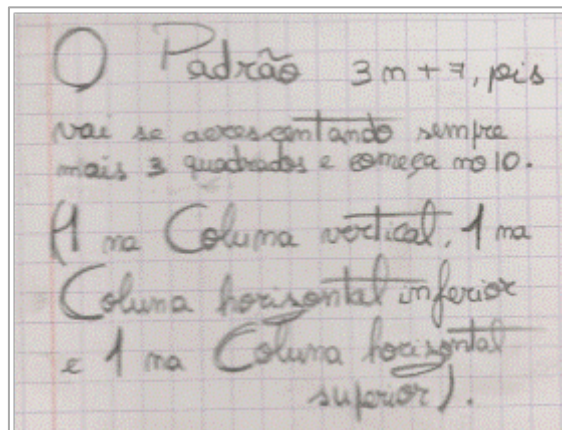 O Padrão 3n+7, pis
vai se acrescentando sempre
mais 3 quadrados e começa no 10.
(1 na Coluna vertical, 1 na
Coluna horisontal inferior
e 1 na Coluna horisontal
superior).